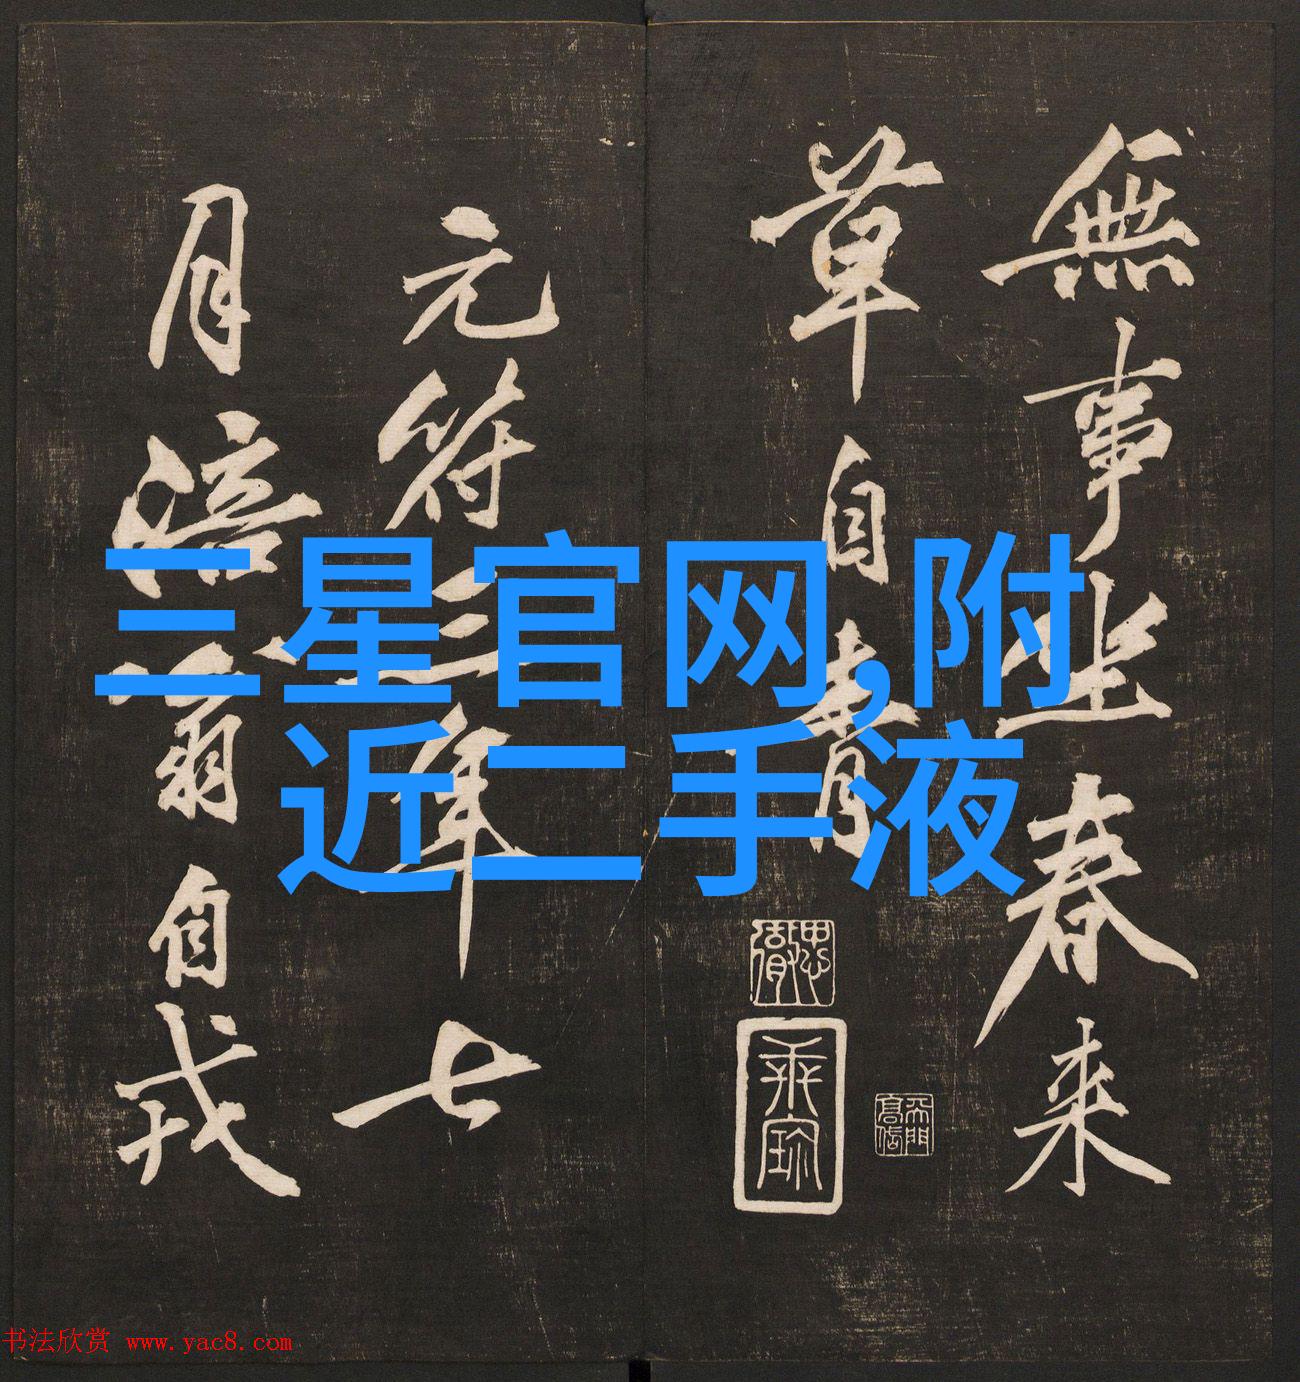 無事坐春来
草自青
元符三年七
月涪翁自戎
三星官网,附
近二手液
书法欣赏 www.yac8.com